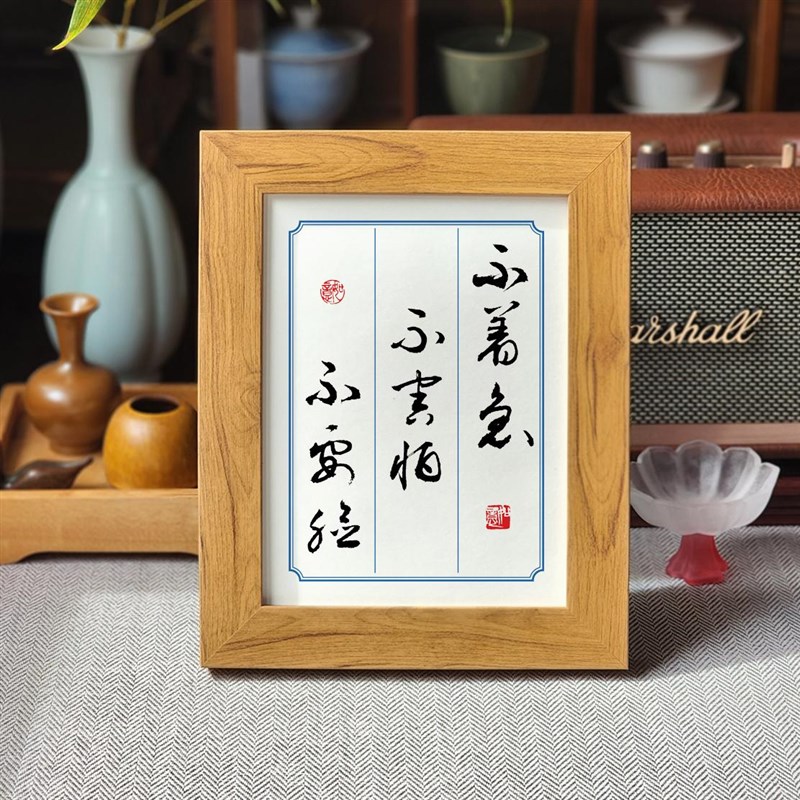 不着急
不害怕
不要脸
Marshall